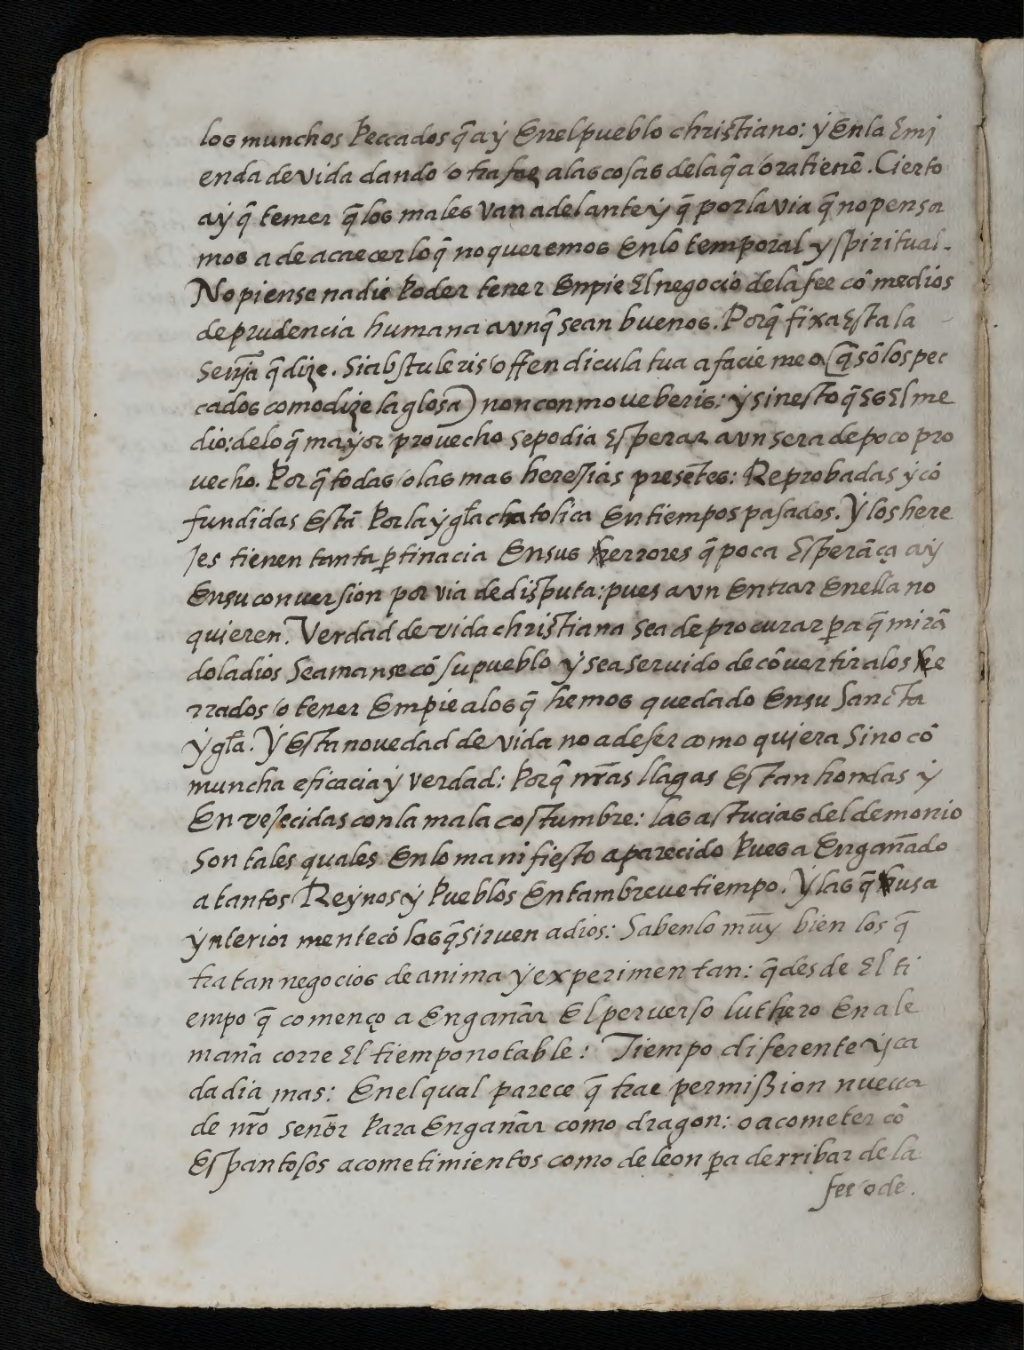 los munchos peccados q̃ ay enel pueblo christiano: y en la emi
enda de vida dando otra faz alas cosas dela q̃ aora tienẽ. Cierto
ay q̃ temer q̃ los males van adelante y q̃ por la via q̃ no pensa
mos a de acaecer lo q̃ no queremos en lo temporal y spiritual.
No piense nadie poder tener en pie el negocio de la fee cõ medios
de prudencia humana avnq̃ sean buenos. Porq̃ fixa esta la
señ̃a q̃ dize. Si abstuleris offendicula tua a facie mea (q̃ sõ los pec
cados como dize la glosa) non conmoueberis: y sin esto q̃ es el me
dio: de lo q̃ mayor prouecho se podia esperar avn sera de poco pro
uecho. Porq̃ todas o las mas heresias presẽtes: Reprobadas y cõ
fundidas estã por la ygl̃a chatolica en tiempos pasados. Y los here
jes tienen tanta p̱tinacia en sus errores q̃ poca esperãça ay
en su conuersion por via de disputa: pues avn entrar en ella no
quieren. Verdad de vida christiana sea de procurar p̱a q̃ mirã
dola dios se amanse cõ su pueblo y sea seruido de cõuertir a los e
rrados o tener em pie a los q̃ hemos quedado en su sancta
ygl̃a. Y esta nouedad de vida no a de ser como quiera sino cõ
muncha eficacia y verdad: porq̃ nr̃as llagas estan hondas y
envejecidas con la mala costumbre: las astucias del demonio
son tales quales en lo manifiesto a parecido pues a engañado
a tantos Reynos y pueblos en tam breue tiempo. Y las q̃ usa
ynteriormente cõ los q̃ siruen a dios: Sabenlo muy bien los q̃
tratan negocios de anima y experimentan: q̃ desde el ti
empo q̃ començo a engañar el peruerso luthero en ale
maña corre el tiempo notable: Tiempo diferente y ca
da dia mas: En el qual parece q̃ trae permißion nueua
de nr̃o señor para engañar como dragon: o acometer cõ
espantosos acometimientos como de leon p̱a derribar de la
fee o de.